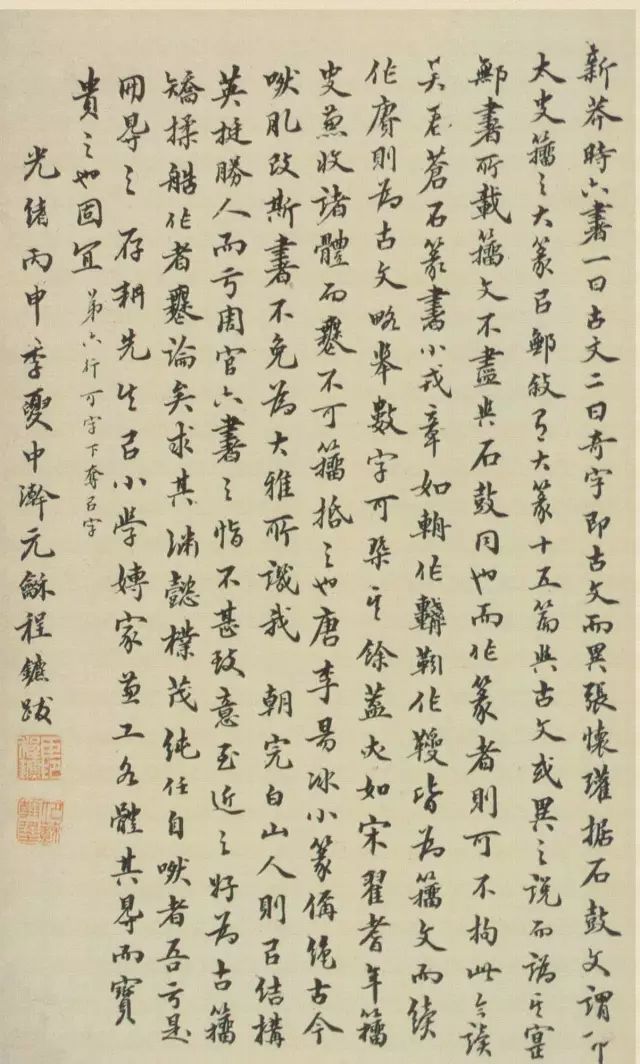 新莽時六書一曰古文二曰奇字即古文而異張懷瓘据石鼓文謂即
太史籀之大篆㠯鄦敘有大篆十五篇與古文或異之說而譌其寔
鄦書所載籀文不盡與石鼓同也而作篆者則可不拘此今讀
吴君蒼石篆書小戎章如輈作靷作皆為籀文而續
作賡則為古文略舉數字可槩其餘蓋亦如宋翟耆年籀
史兼收諸體而要不可籀抵之也唐李昜冰小篆偁絕古今
然肊改斯書不免為大雅所譏我 朝完白山人則㠯結構
英挺勝人而亏周官六書之恉不甚致意至近之好為古籀
矯揉艁作者要論矣求其淵懿樸茂純任自然者吾亏是
冊得之 存耕先生㠯小學專家兼工各體其得而寶
貴之也固宜 第六行可字下奪㠯字
光緒丙申季夏中澣元龢程鑣跋